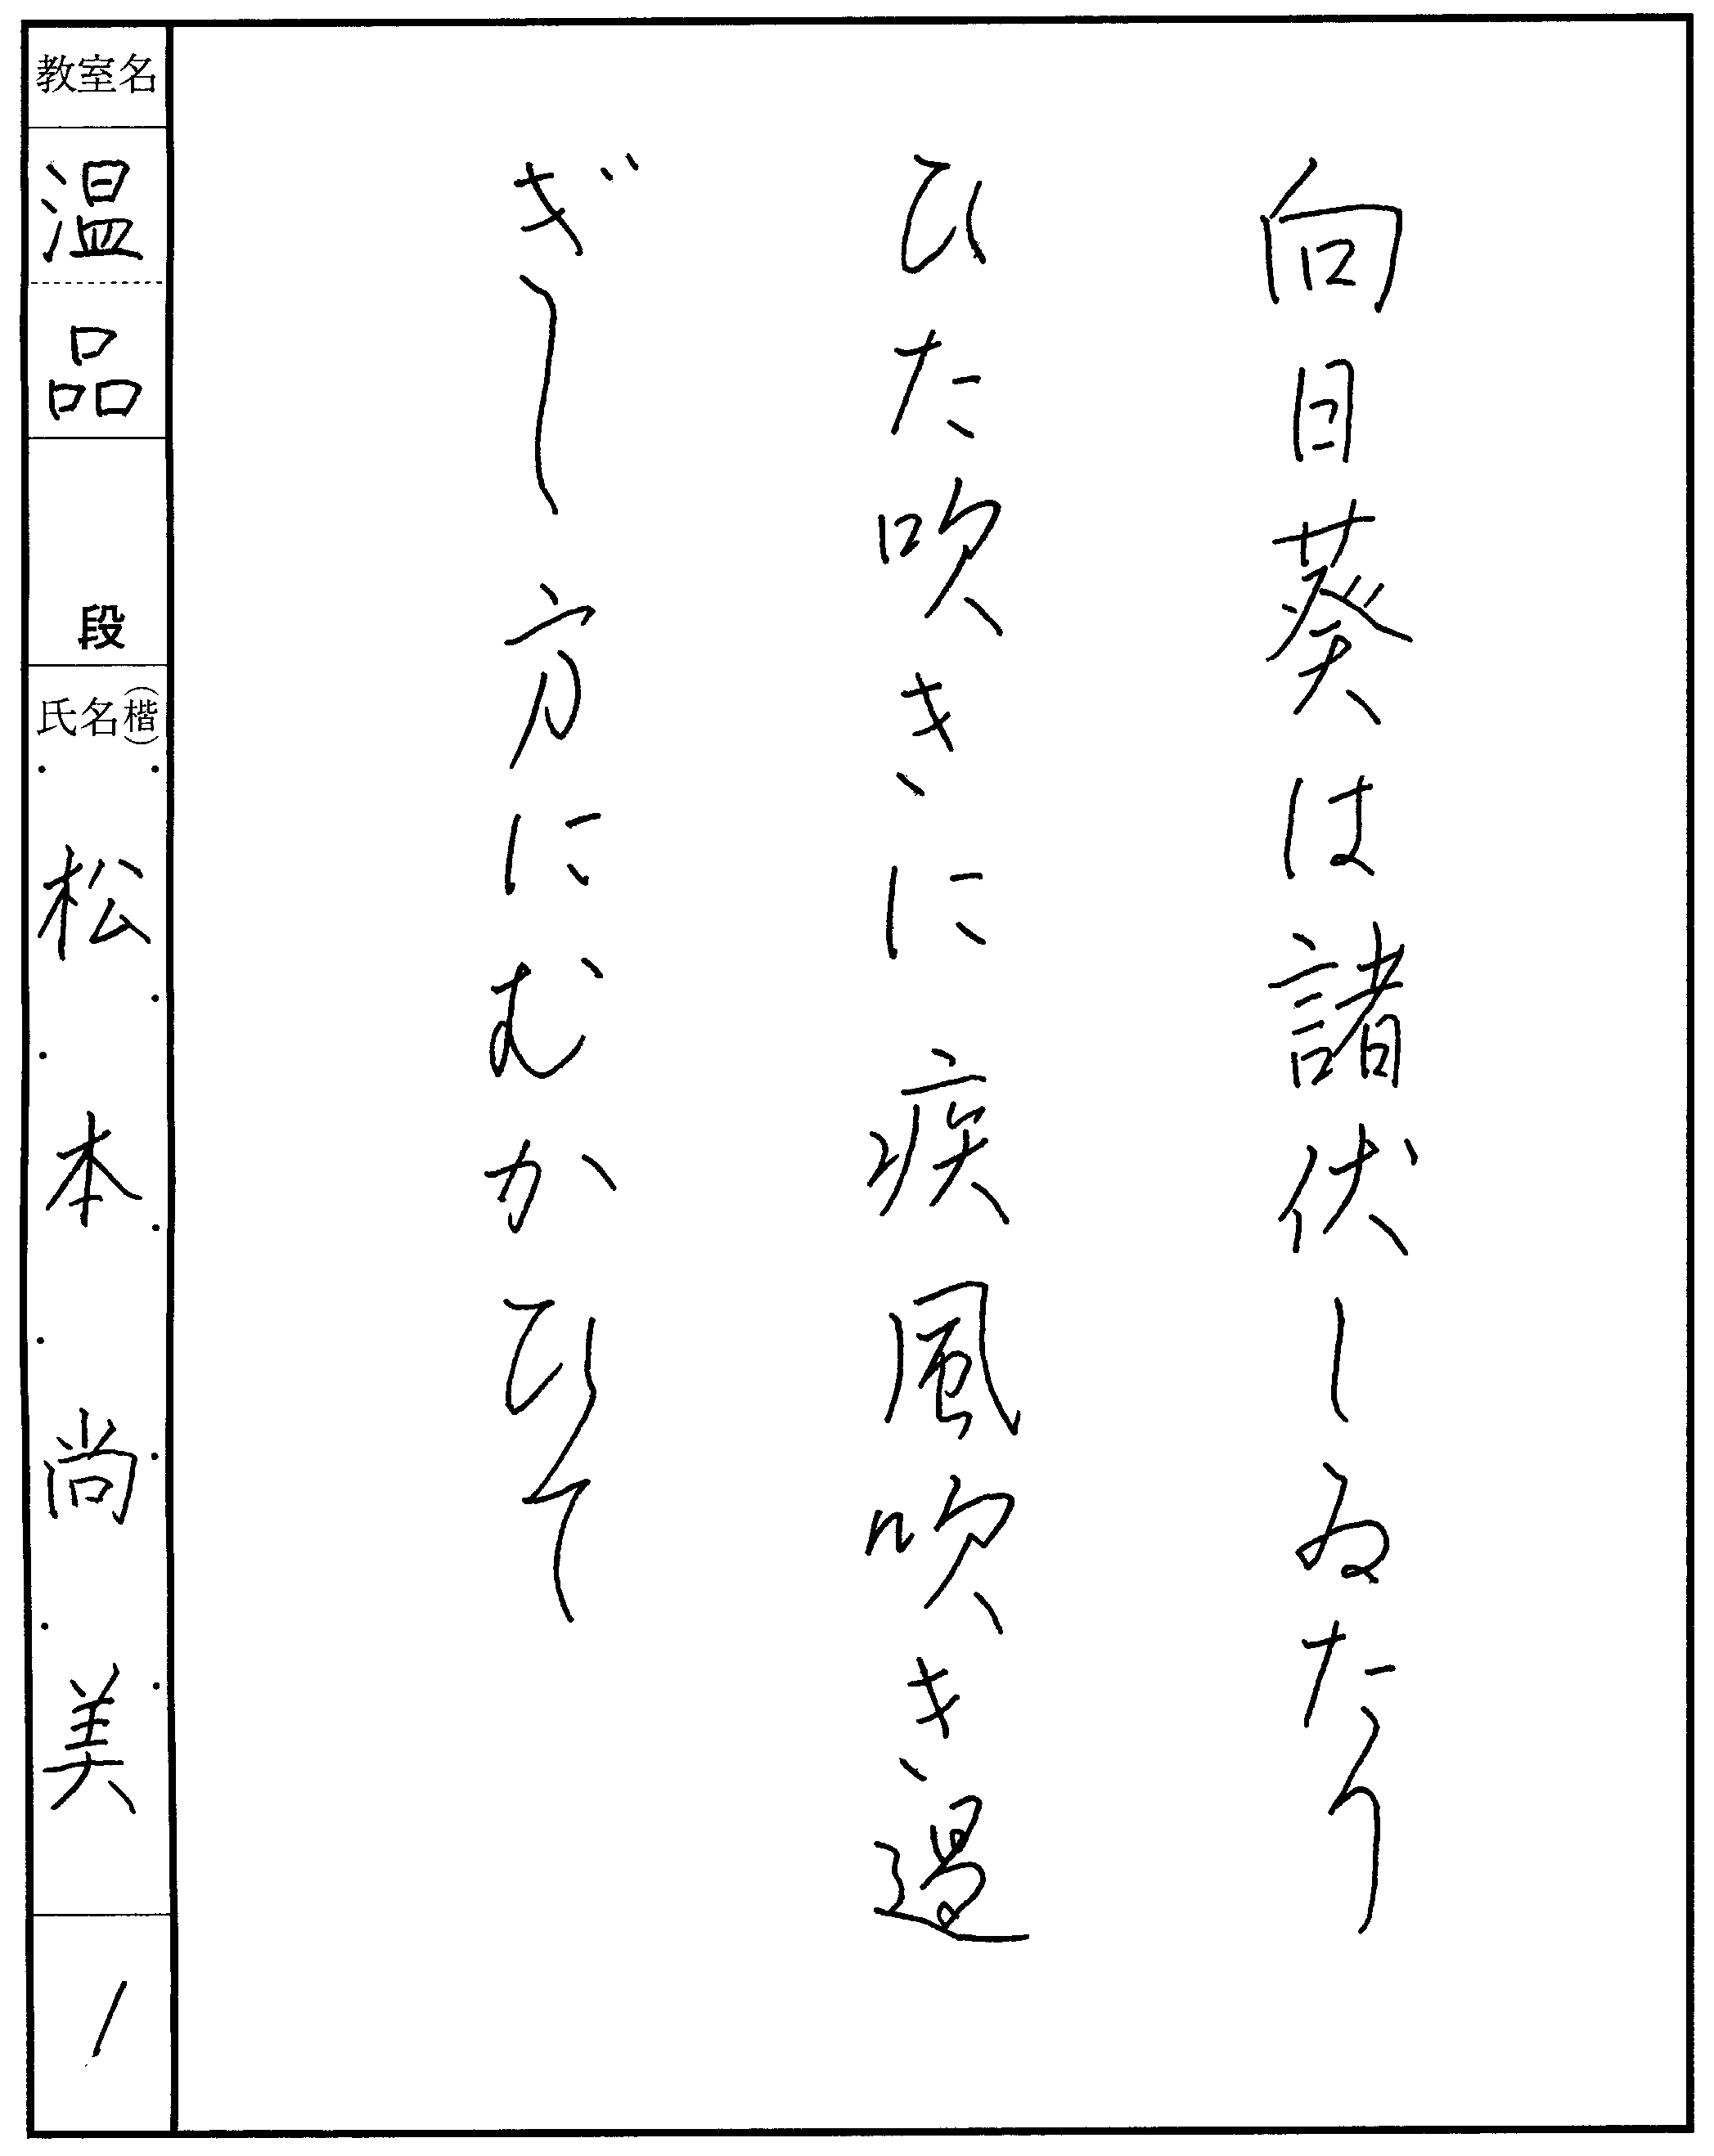 向日葵は諸伏しゐたり
ひた吹きに疾風吹き過
ぎし方にむかひて
教室名
温品
段
氏名(楷)
松本尚美
1